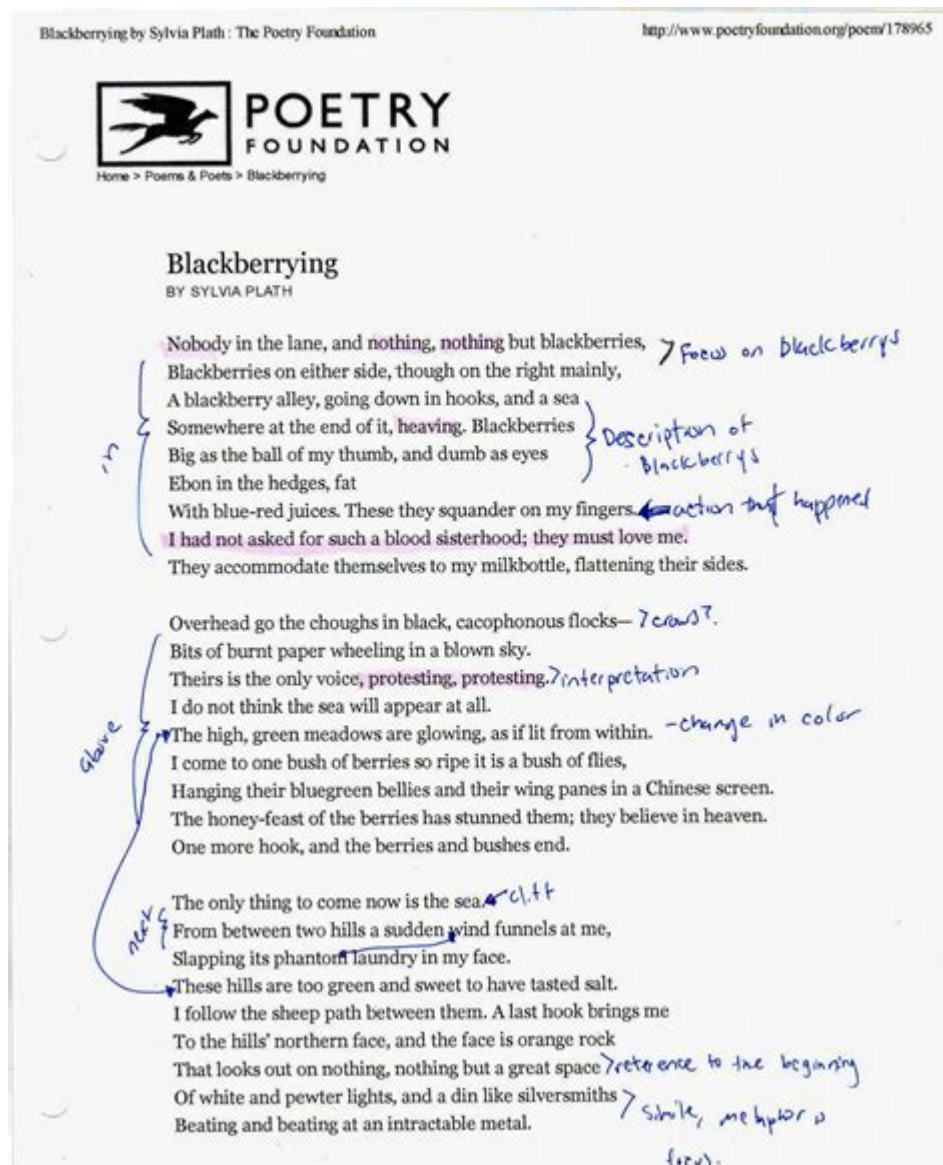 Blackberrying by Sylvia Plath : The Poetry Foundation
http://www.poetryfoundation.org/poem/178965
POETRY
FOUNDATION
Home > Poems & Poets > Blackberrying
Blackberrying
BY SYLVIA PLATH
Nobody in the lane, and nothing, nothing but blackberries, Focus on blackberrys
Blackberries on either side, though on the right mainly,
A blackberry alley, going down in hooks, and a sea
Somewhere at the end of it, heaving. Blackberries
in
Description of
Blackberrys
Big as the ball of my thumb, and dumb as eyes
Ebon in the hedges, fat
With blue-red juices. These they squander on my fingers. action that happened
I had not asked for such a blood sisterhood; they must love me.
They accommodate themselves to my milkbottle, flattening their sides.
Overhead go the choughs in black, cacophonous flocks— crows?.
Bits of burnt paper wheeling in a blown sky.
Theirs is the only voice, protesting, protesting. interpretation
I do not think the sea will appear at all.
above
The high, green meadows are glowing, as if lit from within. -change in color
I come to one bush of berries so ripe it is a bush of flies,
Hanging their bluegreen bellies and their wing panes in a Chinese screen.
The honey-feast of the berries has stunned them; they believe in heaven.
One more hook, and the berries and bushes end.
The only thing to come now is the sea. cliff
next
From between two hills a sudden wind funnels at me,
Slapping its phantom laundry in my face.
These hills are too green and sweet to have tasted salt.
I follow the sheep path between them. A last hook brings me
To the hills' northern face, and the face is orange rock
That looks out on nothing, nothing but a great space reference to the beginning
Of white and pewter lights, and a din like silversmiths
Simile, metaphor
Beating and beating at an intractable metal.